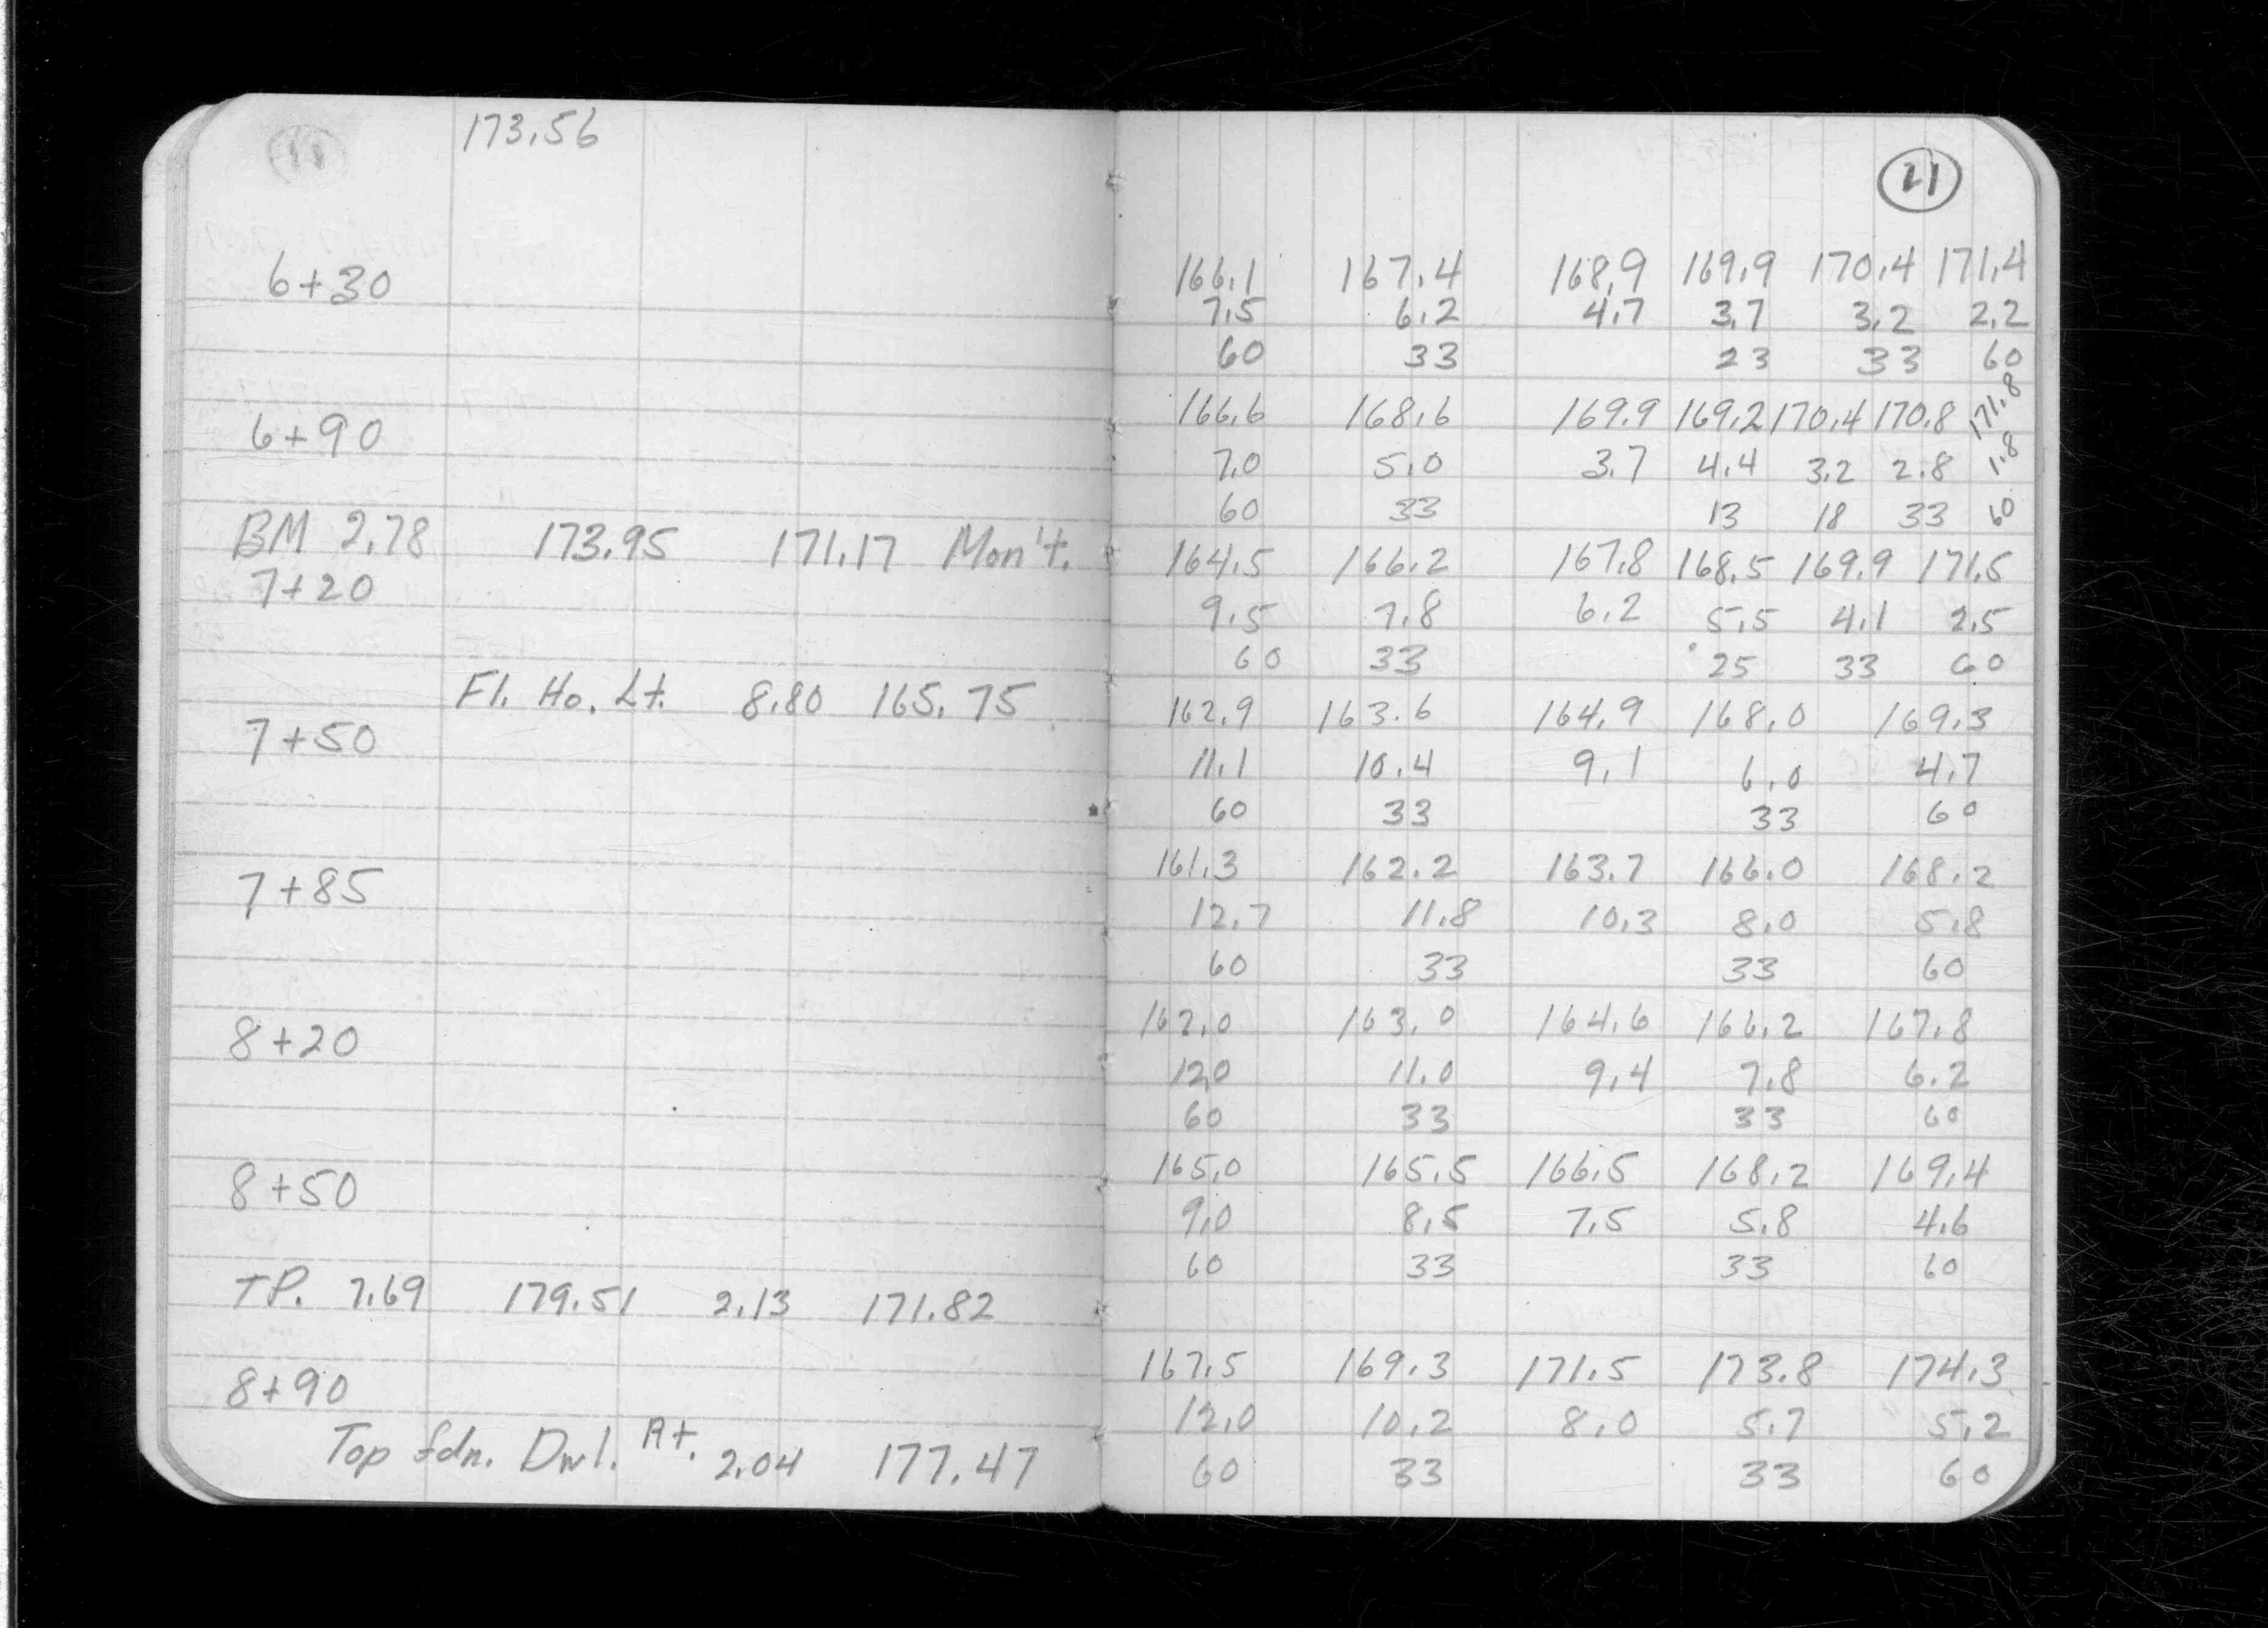 173.56
6+30
6+90
BM 2.78 173.95 171.17 Mon't.
7+20
Fl. Ho. Lt. 8.80 165.75
7+50
7+85
8+20
8+50
TP. 7.69 179.51 2.13 171.82
8+90
Top fdn. Dwl. Rt. 2.04 177.47
166.1 167.4 168.9 169.9 170.4 171.4
7.5 6.2 4.7 3.7 3.2 2.2
60 33 23 33 60
166.6 168.6 169.9 169.2 170.4 170.8 171.8
7.0 5.0 3.7 4.4 3.2 2.8 1.8
60 33 13 18 33 60
164.5 166.2 167.8 168.5 169.9 171.5
9.5 7.8 6.2 5.5 4.1 2.5
60 33 25 33 60
162.9 163.6 164.9 168.0 169.3
11.1 10.4 9.1 6.0 4.7
60 33 33 60
161.3 162.2 163.7 166.0 168.2
12.7 11.8 10.3 8.0 5.8
60 33 33 60
162.0 163.0 164.6 166.2 167.8
12.0 11.0 9.4 7.8 6.2
60 33 33 60
165.0 165.5 166.5 168.2 169.4
9.0 8.5 7.5 5.8 4.6
60 33 33 60
167.5 169.3 171.5 173.8 174.3
12.0 10.2 8.0 5.7 5.2
60 33 33 60